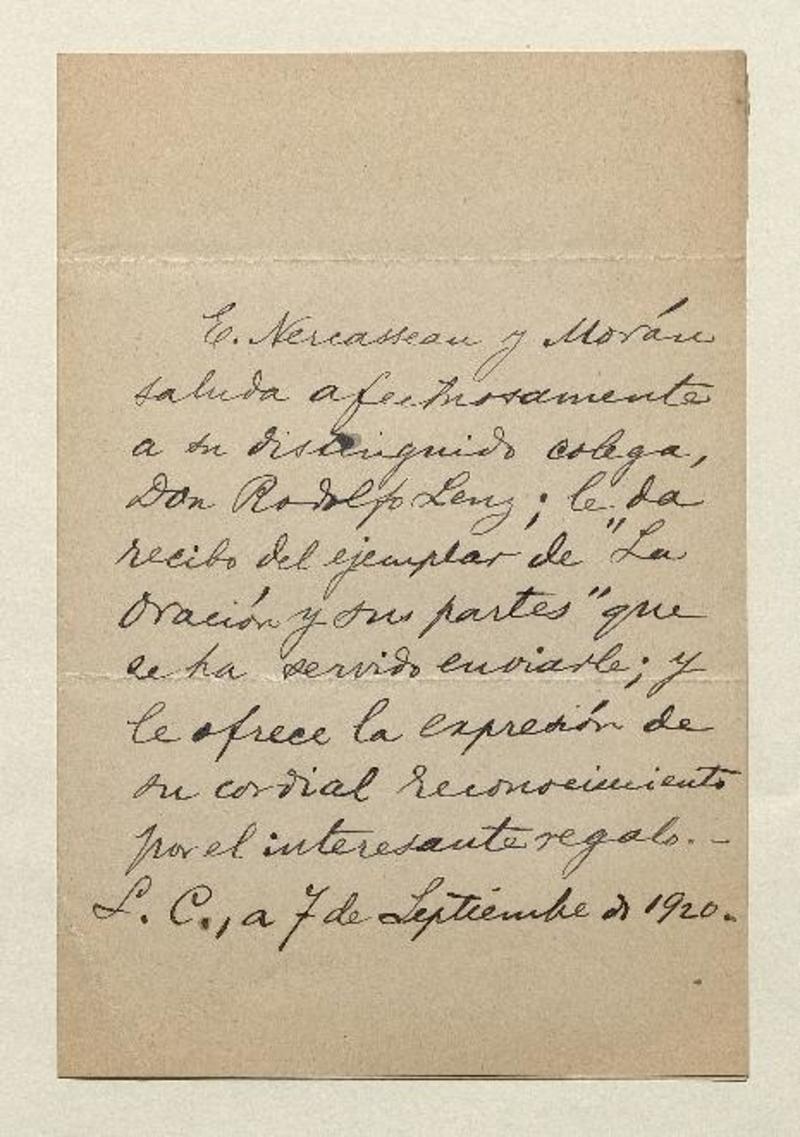 E. Nercasseau y Morán
saluda afectuosamente
a su distinguido colega,
Don Rodolfo Lenz; le da
recibo del ejemplar de "La
Oración y sus partes" que
se ha servido enviarle; y
le ofrece la expresión de
su cordial reconocimiento
por el interesante regalo. -
L. C., a 7 de Septiembe de 1920.